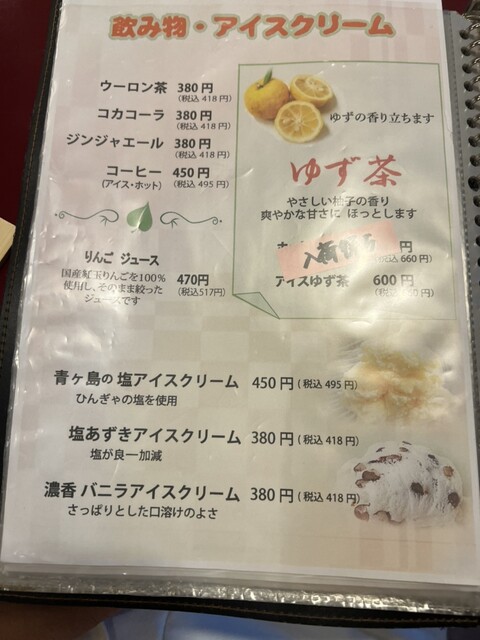 飲み物・アイスクリーム
ウーロン茶 380円
(税込 418円)
コカコーラ 380円
(税込 418円)
ジンジャエール 380円
(税込 418円)
コーヒー 450円
(アイス・ホット) (税込 495円)
りんご ジュース
国産紅玉りんごを100%
使用し、そのまま絞った
ジュースです
470円
(税込517円)
ゆずの香り立ちます
ゆず茶
やさしい柚子の香り
爽やかな甘さに ほっとします
円
税込 660円)
アイスゆず茶 600円
円)
青ヶ島の 塩アイスクリーム 450円 (税込 495円)
ひんぎゃの塩を使用
塩あずきアイスクリーム 380円 (税込 418円)
塩が良一加減
濃香 バニラアイスクリーム 380円 (税込 418円)
さっぱりとした口溶けのよさ